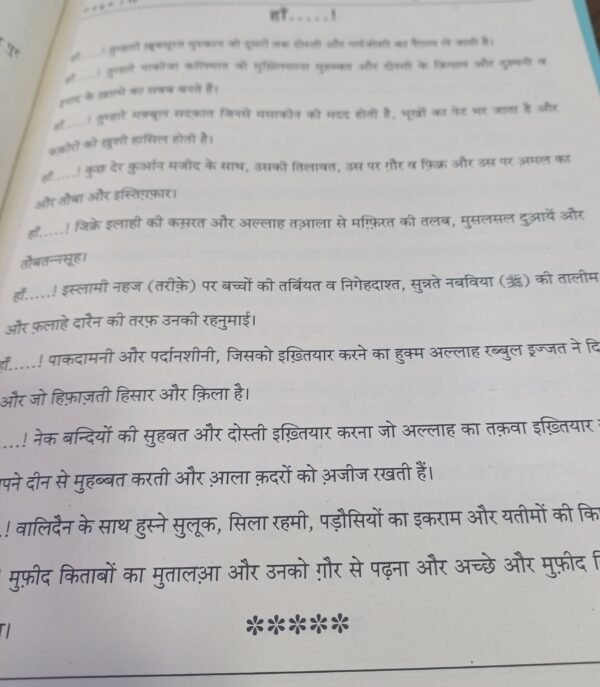 हाँ.....!
हाँ.....! तुम्हारी ख़ूबसूरत मुस्कान जो दूसरों तक दोस्ती और गर्मजोशी का पैग़ाम ले जाती है।
हाँ.....! तुम्हारे पाकीज़ा कलिमात जो मुसलमाना मुहब्बत और दोस्ती के क़ियाम और दुश्मनी व
के ख़ात्मे का सबब बनते हैं।
हाँ.....! तुम्हारे मक़बूल सदक़ात जिनसे मसाकीन को मदद होती है, भूखों का पेट भर जाता है और
फ़क़ीरों को ख़ुशी हासिल होती है।
हाँ.....! कुछ देर क़ुर्आन मजीद के साथ, उसकी तिलावत, उस पर ग़ौर व फ़िक्र और उस पर अमल का
और तौबा और इस्तिग़फ़ार।
हाँ.....! ज़िक्रे इलाही की कसरत और अल्लाह तआला से मग़्फ़िरत की तलब, मुसलसल दुआयें और
तौबतन्नसूह।
हाँ.....! इस्लामी नहज (तरीक़े) पर बच्चों की तर्बियत व निगेहदाश्त, सुन्नते नबविया (ﷺ) की तालीम
और फ़लाहे दारैन की तरफ़ उनकी रहनुमाई।
हाँ.....! पाकदामनी और पर्दानशीनी, जिसको इख़्तियार करने का हुक्म अल्लाह रब्बुल इज्जत ने दि
और जो हिफ़ाज़ती हिसार और क़िला है।
....! नेक बन्दियों की सुहबत और दोस्ती इख़्तियार करना जो अल्लाह का तक़वा इख़्तियार
पने दीन से मुहब्बत करती और आला क़दरों को अजीज रखती हैं।
.! वालिदैन के साथ हुस्ने सुलूक, सिला रहमी, पड़ौसियों का इकराम और यतीमों की कि
मुफ़ीद किताबों का मुतालआ और उनको ग़ौर से पढ़ना और अच्छे और मुफ़ीद
ा।
✽✽✽✽✽